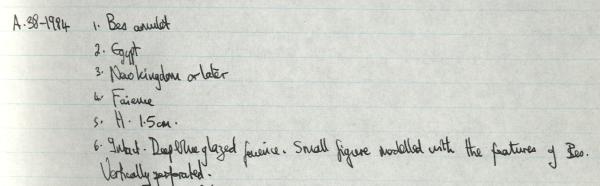 A.38-1984 1. Bes amulet
2. Egypt
3. New kingdom or later
4. Faience
5. H. 1.5cm.
6. Intact. Deep blue glazed faience. Small figure modelled with the features of Bes.
Vertically perforated.